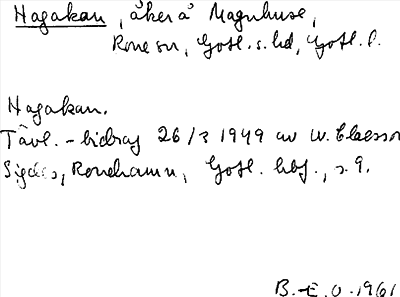 Hagakan, åker å Magnhuse,
Rone sn, Gotl. s. hd, Gotl. l.
Hagakan.
Tävl. - bidrag 26/3 1949 av W. Claesson
Ronehamn, Gotl. hbf., s. 9.
B.-E. O. 1961